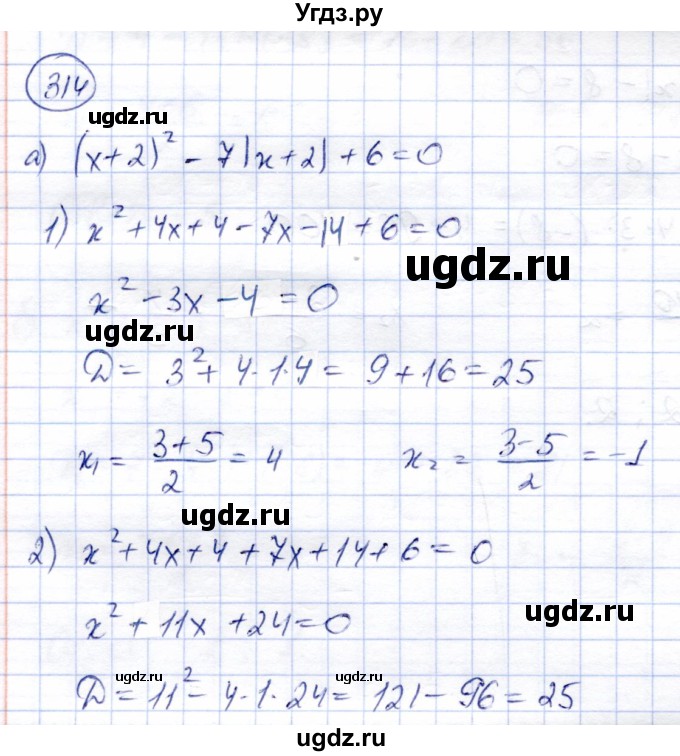 Угдз.ру
314
ugdz.ru
а) (x+2)² - 7|x+2| + 6 = 0
1) x² + 4x + 4 - 7x - 14 + 6 = 0
ugdz.ru
x² - 3x - 4 = 0
ugdz.ru
D = 3² + 4·1·4 = 9 + 16 = 25
x₁ = (3+5)/2 = 4 x₂ = (3-5)/2 = -1
ugdz.ru
2) x² + 4x + 4 + 7x + 14 + 6 = 0
ugdz.ru
x² + 11x + 24 = 0
ugdz.ru ugdz.ru
D = 11² - 4·1·24 = 121 - 96 = 25
ugdz.ru